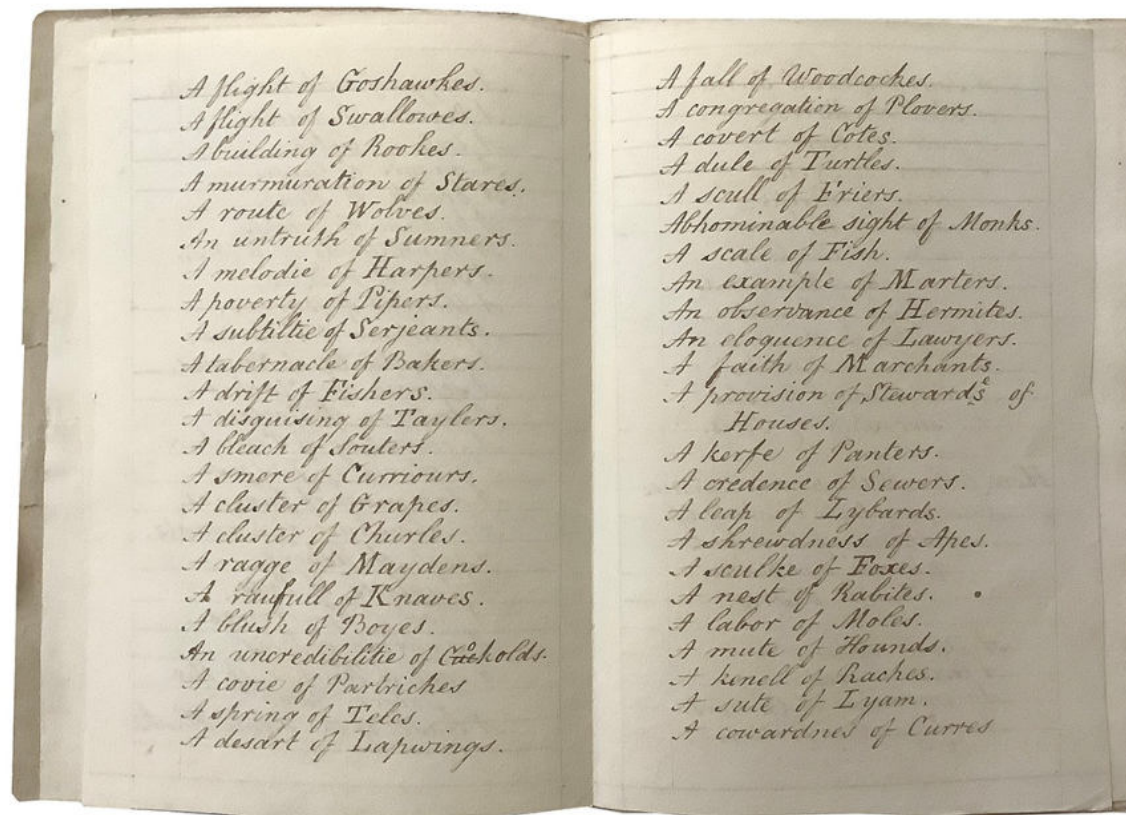 A flight of Goshawkes.
A flight of Swallowes.
A building of Rookes.
A murmuration of Stares.
A route of Wolves.
An untruth of Sumners.
A melodie of Harpers.
A poverty of Pipers.
A subtiltie of Serjeants.
A tabernacle of Bakers.
A drift of Fishers.
A disguising of Taylers.
A bleach of Souters.
A smere of Curriours.
A cluster of Grapes.
A cluster of Churles.
A ragge of Maydens.
A raufull of Knaves.
A blush of Boyes.
An uncredibilitie of Cockolds.
A covie of Partriches
A spring of Teles.
A desart of Lapwings.
A fall of Woodcockes.
A congregation of Plovers.
A covert of Cotes.
A dule of Turtles.
A scull of Friers.
Abhominable sight of Monks.
A scale of Fish.
An example of Marters.
An observance of Hermites.
An eloquence of Lawyers.
A faith of Marchants.
A provision of Stewardes of
Houses.
A kerfe of Panters.
A credence of Sewers.
A leap of Lybards.
A shrewdness of Apes.
A sculke of Foxes.
A nest of Rabites.
A labor of Moles.
A mute of Hounds.
A kenell of Raches.
A sute of Lyam.
A cowardnes of Curres